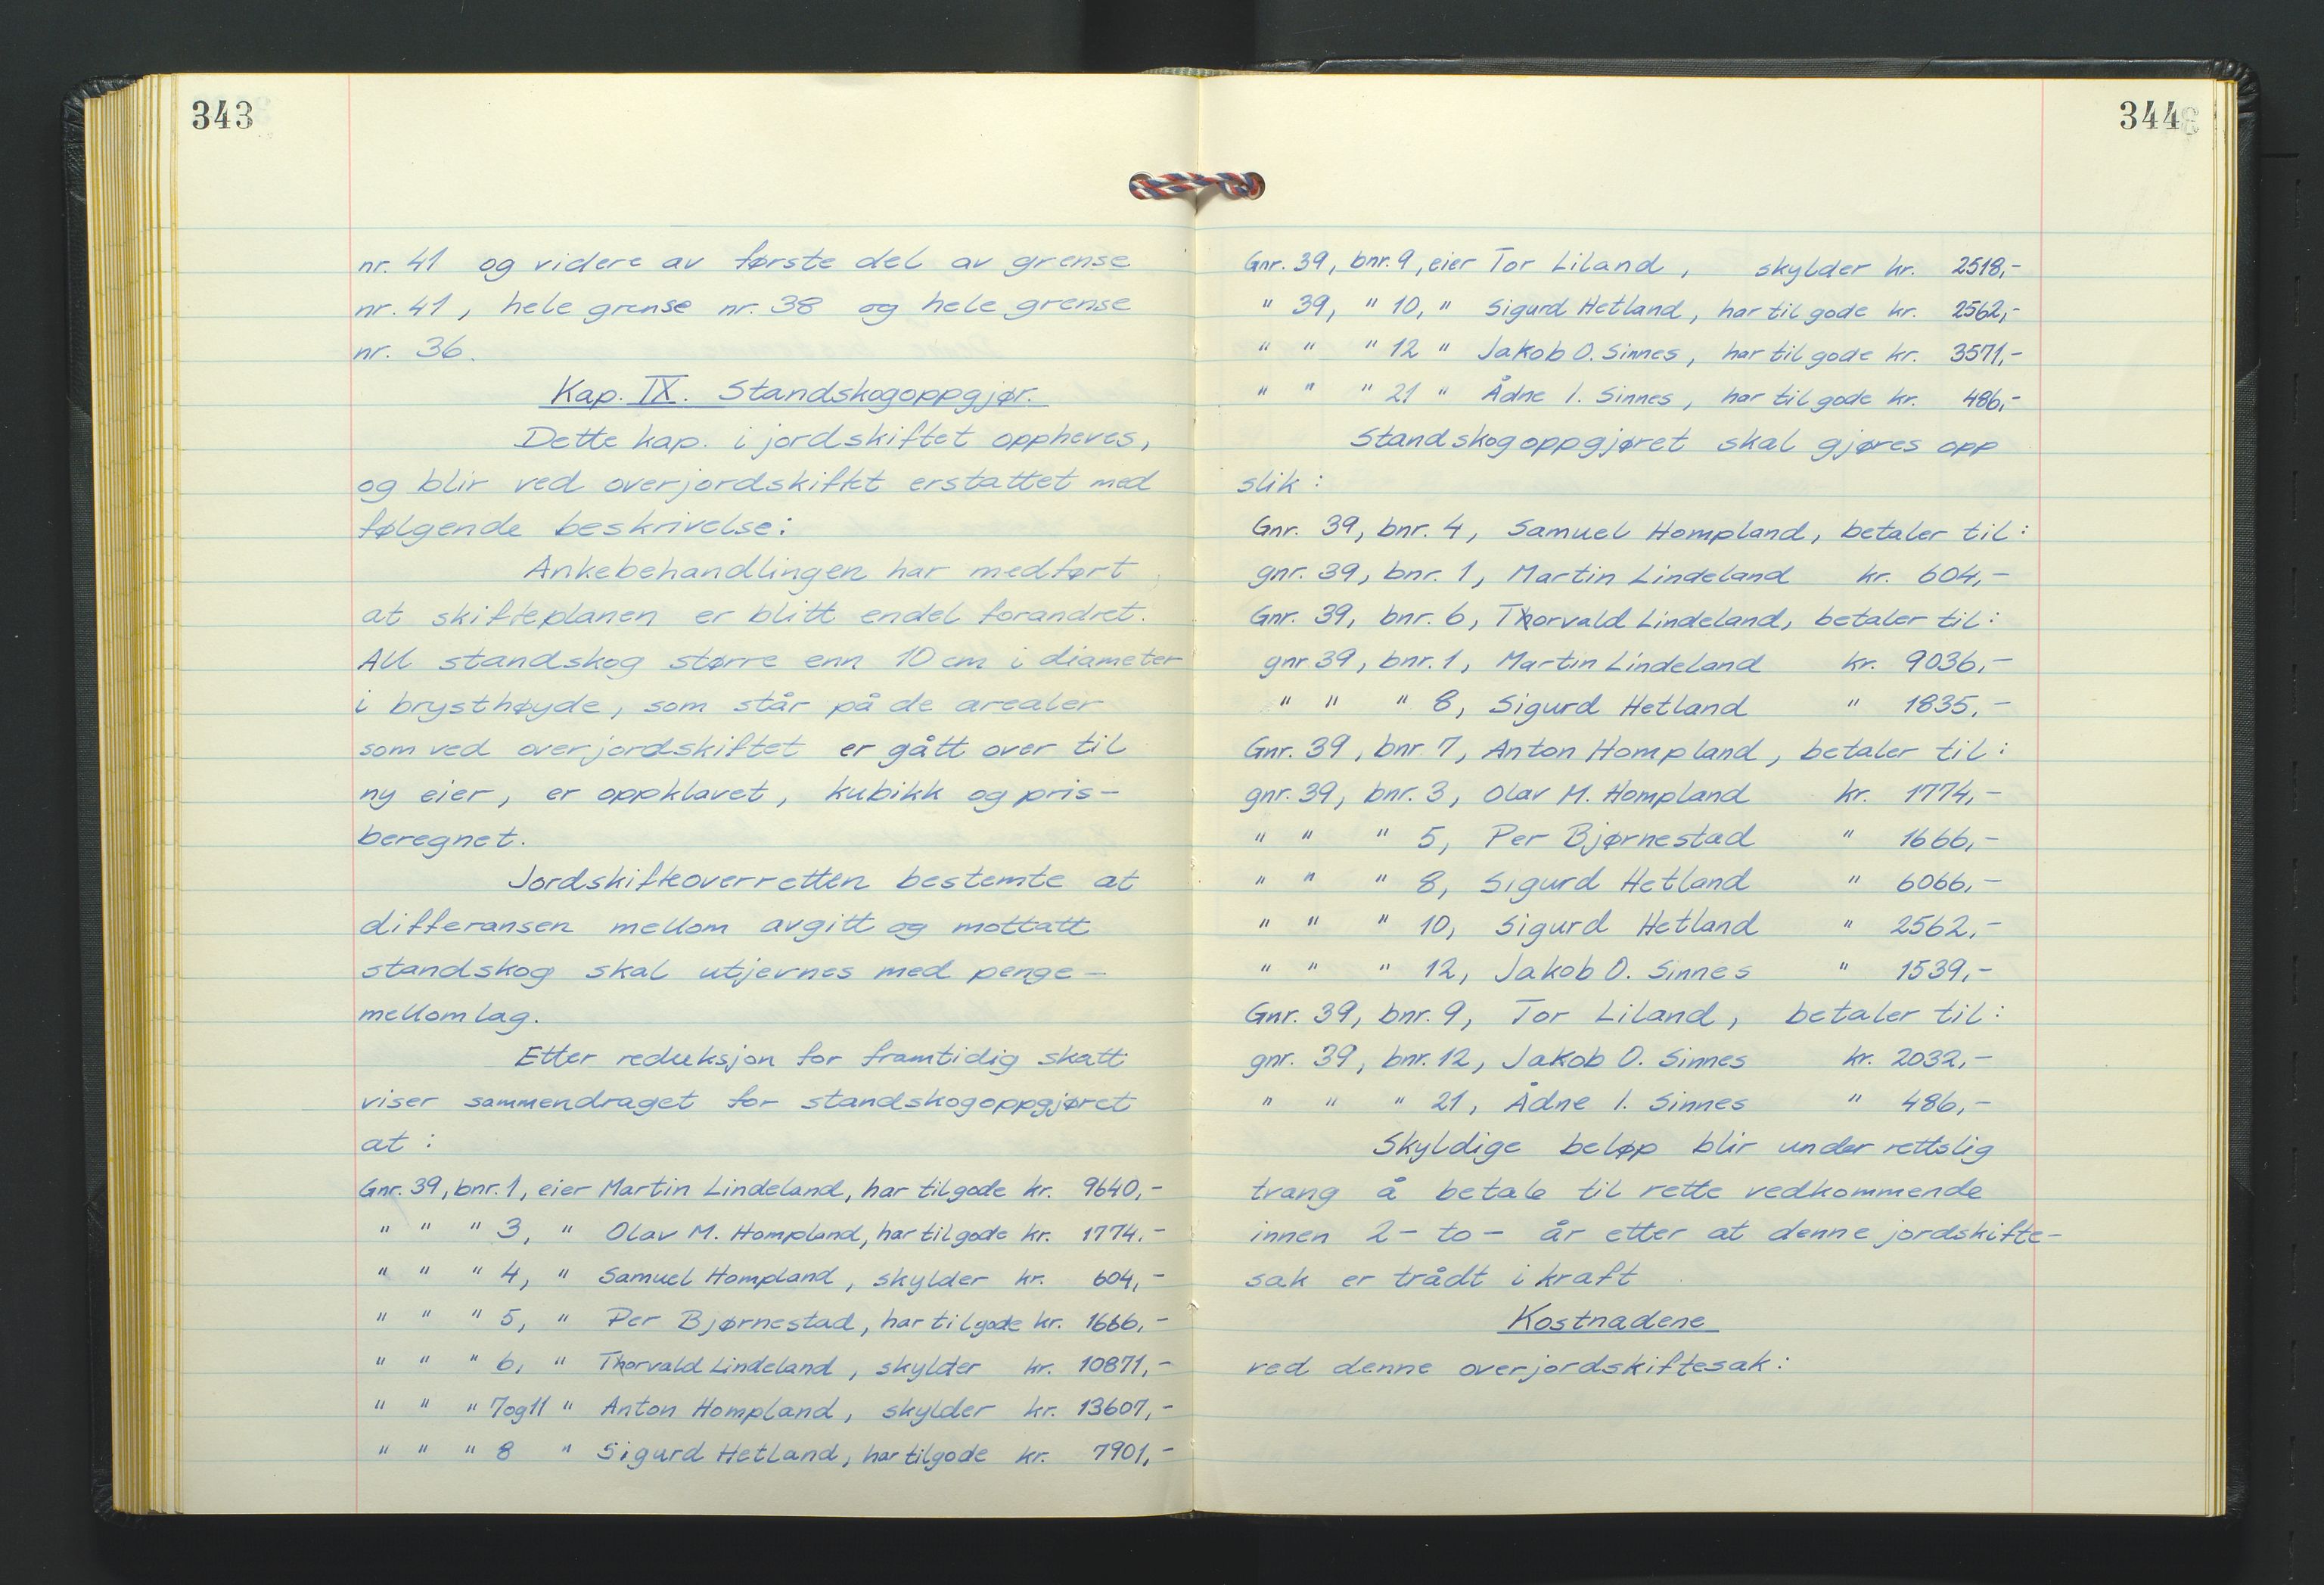 343
nr. 41 og videre av første del av grense
nr. 41, hele grense nr. 38 og hele grense
nr. 36.
Kap. IX. Standskogoppgjør.
Dette kap. i jordskiftet oppheves,
og blir ved overjordskiftet erstattet med
følgende beskrivelse:
Ankebehandlingen har medført
at skifteplanen er blitt endel forandret.
All standskog større enn 10 cm i diameter
i brysthøyde, som står på de arealer
som ved overjordskiftet er gått over til
ny eier, er oppklavet, kubikk og pris-
beregnet.
Jordskifteoverretten bestemte at
differansen mellom avgitt og mottatt
standskog skal utjevnes med penge-
mellomlag.
Etter reduksjon for framtidig skatt
viser sammendraget for standskogoppgjøret
at:
Gnr. 39, bnr. 1, eier Martin Lindeland, har tilgode kr. 9640,-
" " " 3, " Olav M. Hompland, har tilgode kr. 1774,-
" " " 4, " Samuel Hompland, skylder kr. 604,-
" " " 5, " Per Bjørnestad, har tilgode kr. 1666,-
" " " 6, " Thorvald Lindeland, skylder kr. 10871,-
" " " 7og11 " Anton Hompland, skylder kr. 13607,-
" " " 8 " Sigurd Hetland, har tilgode kr. 7901,-
344
Gnr. 39, bnr. 9, eier Tor Liland, skylder kr. 2518,-
" 39, " 10, " Sigurd Hetland, har til gode kr. 2562,-
" " " 12 " Jakob O. Sinnes, har til gode kr. 3571,-
" " " 21 " Ådne I. Sinnes, har til gode kr. 486,-
Standskogoppgjøret skal gjøres opp
slik:
Gnr. 39, bnr. 4, Samuel Hompland, betaler til:
gnr. 39, bnr. 1, Martin Lindeland kr. 604,-
Gnr. 39, bnr. 6, Thorvald Lindeland, betaler til:
gnr 39, bnr. 1, Martin Lindeland kr. 9036,-
" " " 8, Sigurd Hetland " 1835,-
Gnr. 39, bnr 7, Anton Hompland, betaler til:
gnr. 39, bnr. 3, Olav M. Hompland kr. 1774,-
" " " 5, Per Bjørnestad " 1666,-
" " " 8, Sigurd Hetland " 6066,-
" " " 10, Sigurd Hetland " 2562,-
" " " 12, Jakob O. Sinnes " 1539,-
Gnr. 39, bnr. 9, Tor Liland, betaler til:
gnr. 39, bnr. 12, Jakob O. Sinnes kr. 2032,-
" " " 21, Ådne I. Sinnes " 486,-
Skyldige beløp blir under rettslig
tvang å betale til rette vedkommende
innen 2- to - år etter at denne jordskifte-
sak er trådt i kraft
Kostnadene
ved denne overjordskiftesak: